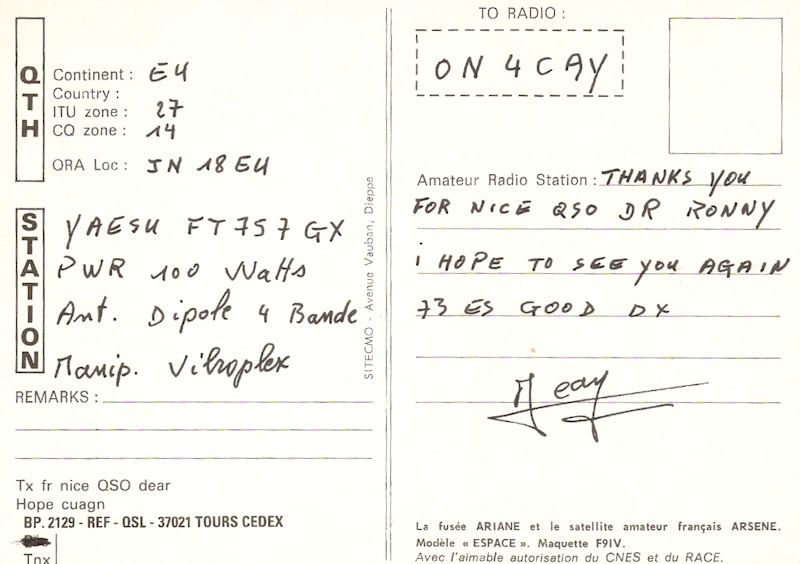 QTH
Continent : EU
Country :
ITU zone : 27
CQ zone : 14
QRA Loc : JN 18 EU
STATION
YAESU FT 757 GX
PWR 100 Watts
Ant. Dipole 4 Bande
Manip. Vibroplex
REMARKS :
Tx fr nice QSO dear
Hope cuagn
BP. 2129 - REF - QSL - 37021 TOURS CEDEX
Tnx
SITECMO - Avenue Vauban, Dieppe
TO RADIO :
ON 4 CAY
Amateur Radio Station : THANKS YOU
FOR NICE QSO DR RONNY
i HOPE TO SEE YOU AGAIN
73 ES GOOD DX
La fusée ARIANE et le satellite amateur français ARSENE.
Modèle « ESPACE ». Maquette F9IV.
Avec l'aimable autorisation du CNES et du RACE.